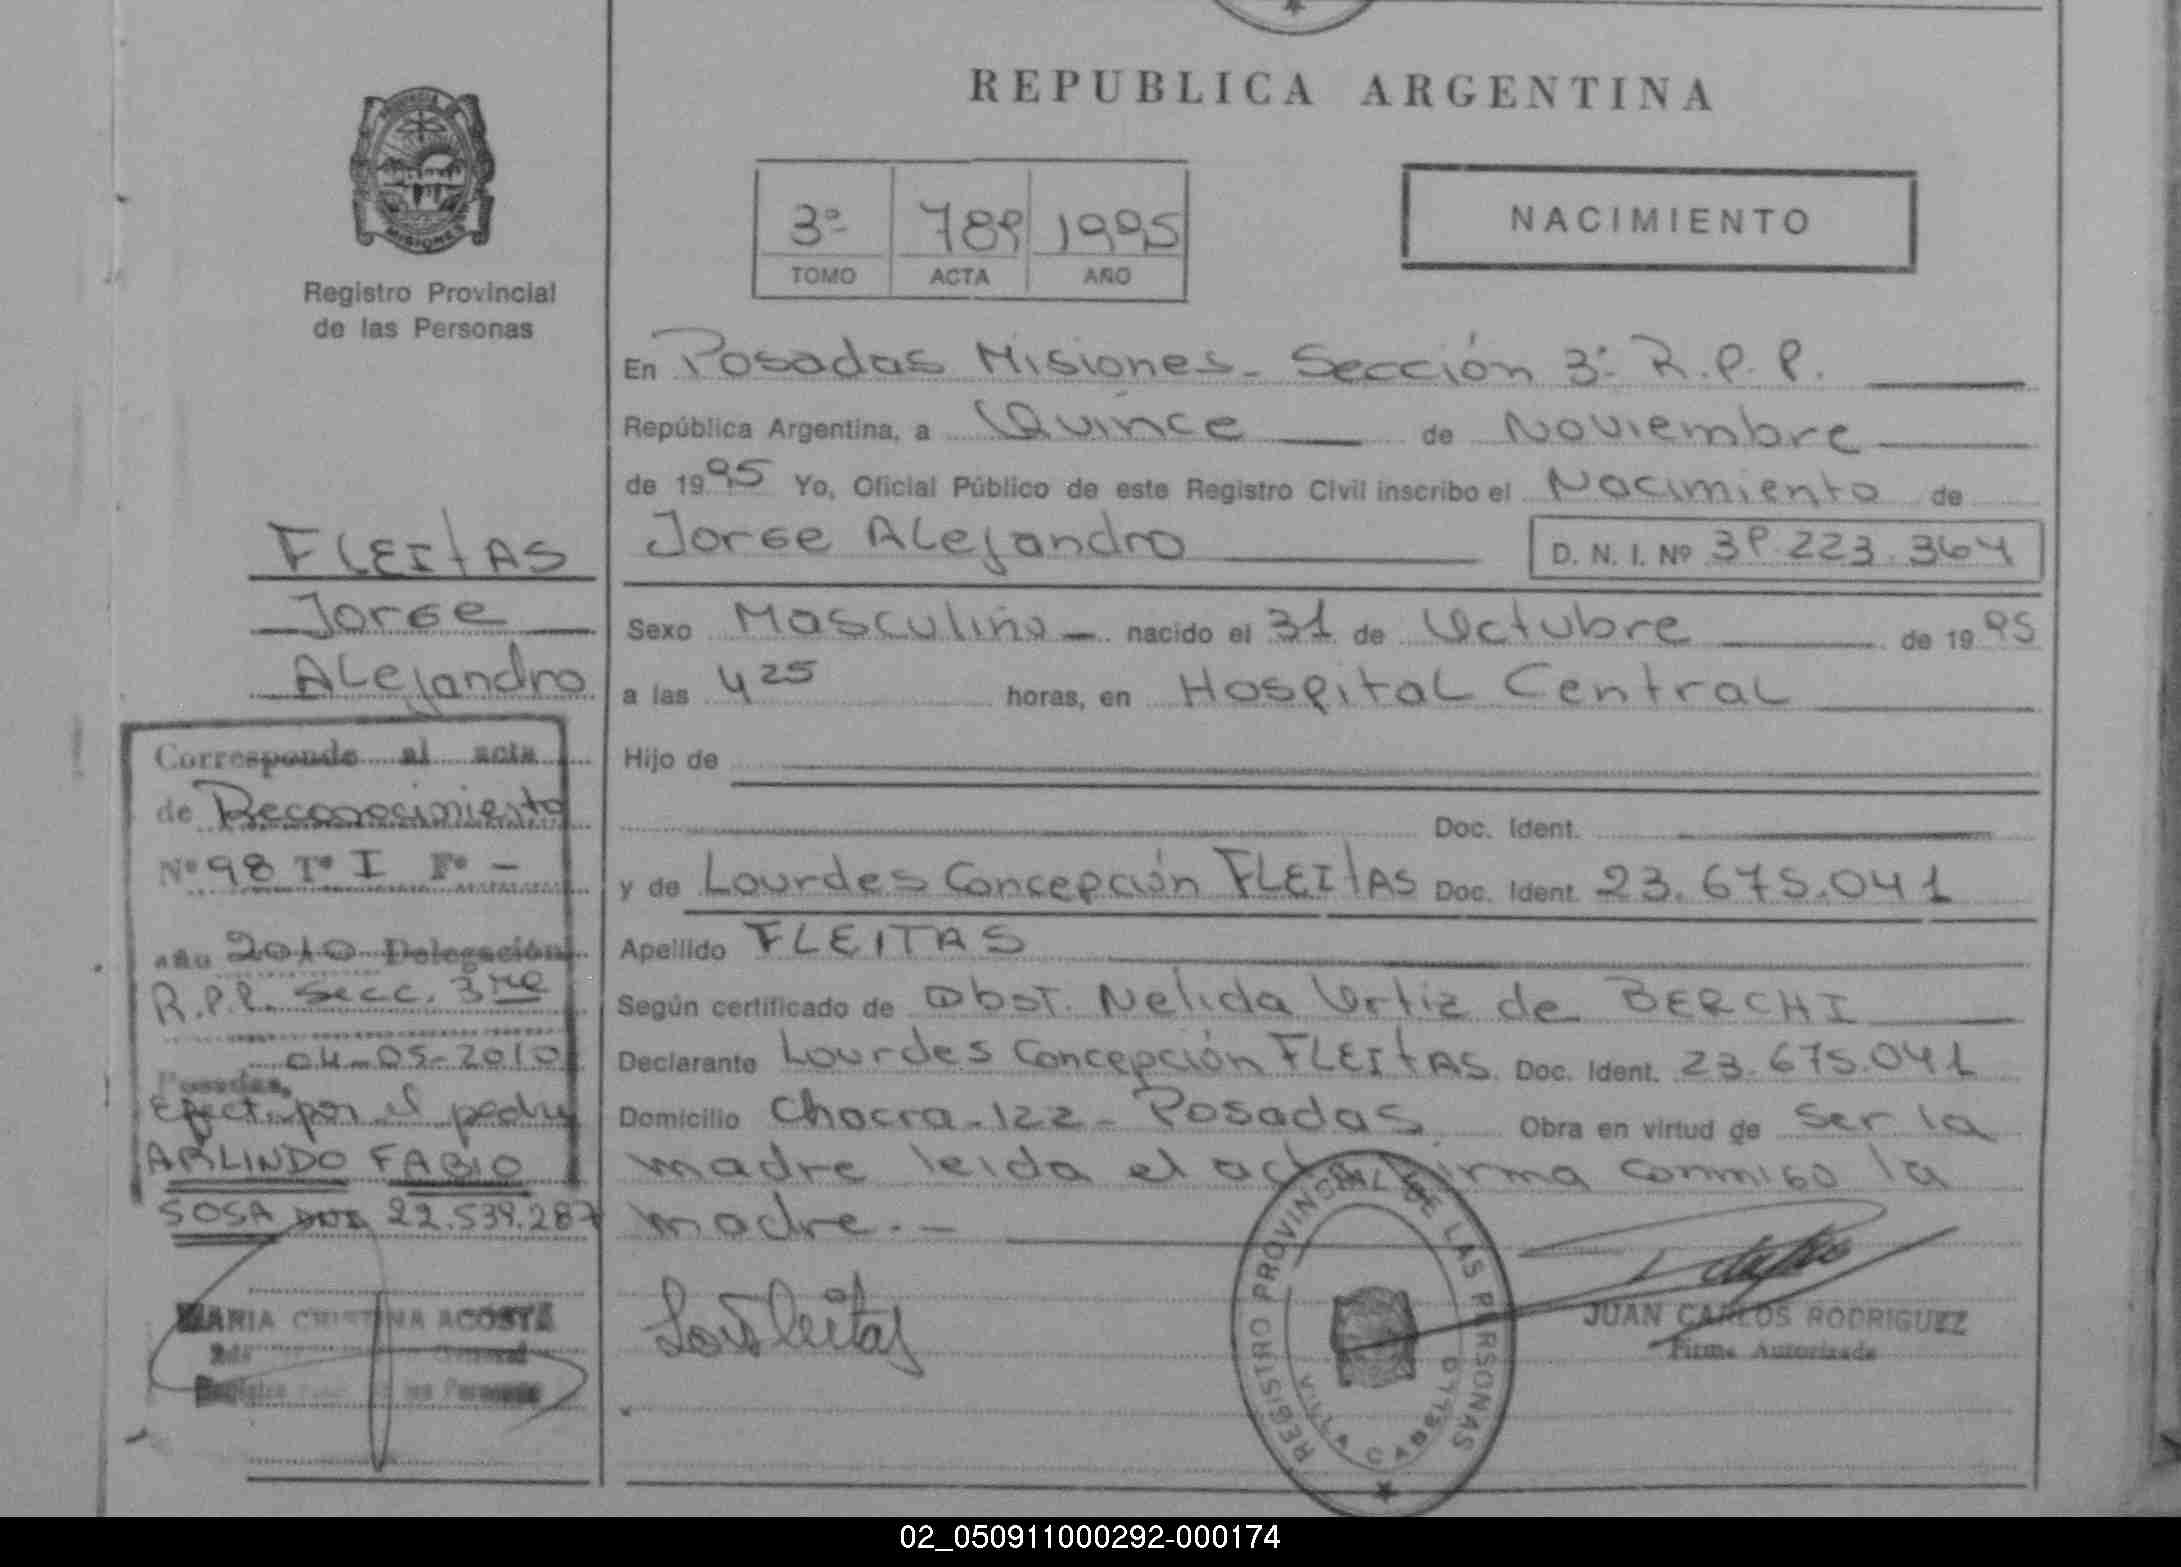 PROVINCIA DE
MISIONES
Registro Provincial
de las Personas
FLEITAS
Jorge
Alejandro
Corresponde al acta
de Reconocimiento
Nº 98 Tº I Fº -
año 2010 Delegación
R.P.P. Secc. 3ra
04-05-2010
Posadas,
Efect. por el padre
ARLINDO FABIO
SOSA DNI 22.539.287
MARIA CRISTINA ACOSTA
REPUBLICA ARGENTINA
3º 789 1995
TOMO ACTA AÑO
NACIMIENTO
En Posadas Misiones - Sección 3ª R.P.P.
República Argentina, a Quince de Noviembre
de 1995 Yo, Oficial Público de este Registro Civil inscribo el Nacimiento de
Jorge Alejandro D. N. I. Nº 39.223.364
Sexo Masculino nacido el 31 de Octubre de 1995
a las 4 25 horas, en Hospital Central
Hijo de
Doc. Ident.
y de Lourdes Concepción FLEITAS Doc. Ident. 23.675.041
Apellido FLEITAS
Según certificado de Obst. Nelida Ortiz de BERCHI
Declarante Lourdes Concepción FLEITAS Doc. Ident. 23.675.041
Domicilio Chacra-122- Posadas Obra en virtud de ser la
madre leida el acta firma conmigo la
madre.-
Lou Fleitas
REGISTRO PROVINCIAL DE LAS PERSONAS
VILLA CABELLO
JUAN CARLOS RODRIGUEZ
Firma Autorizada
02_050911000292-000174